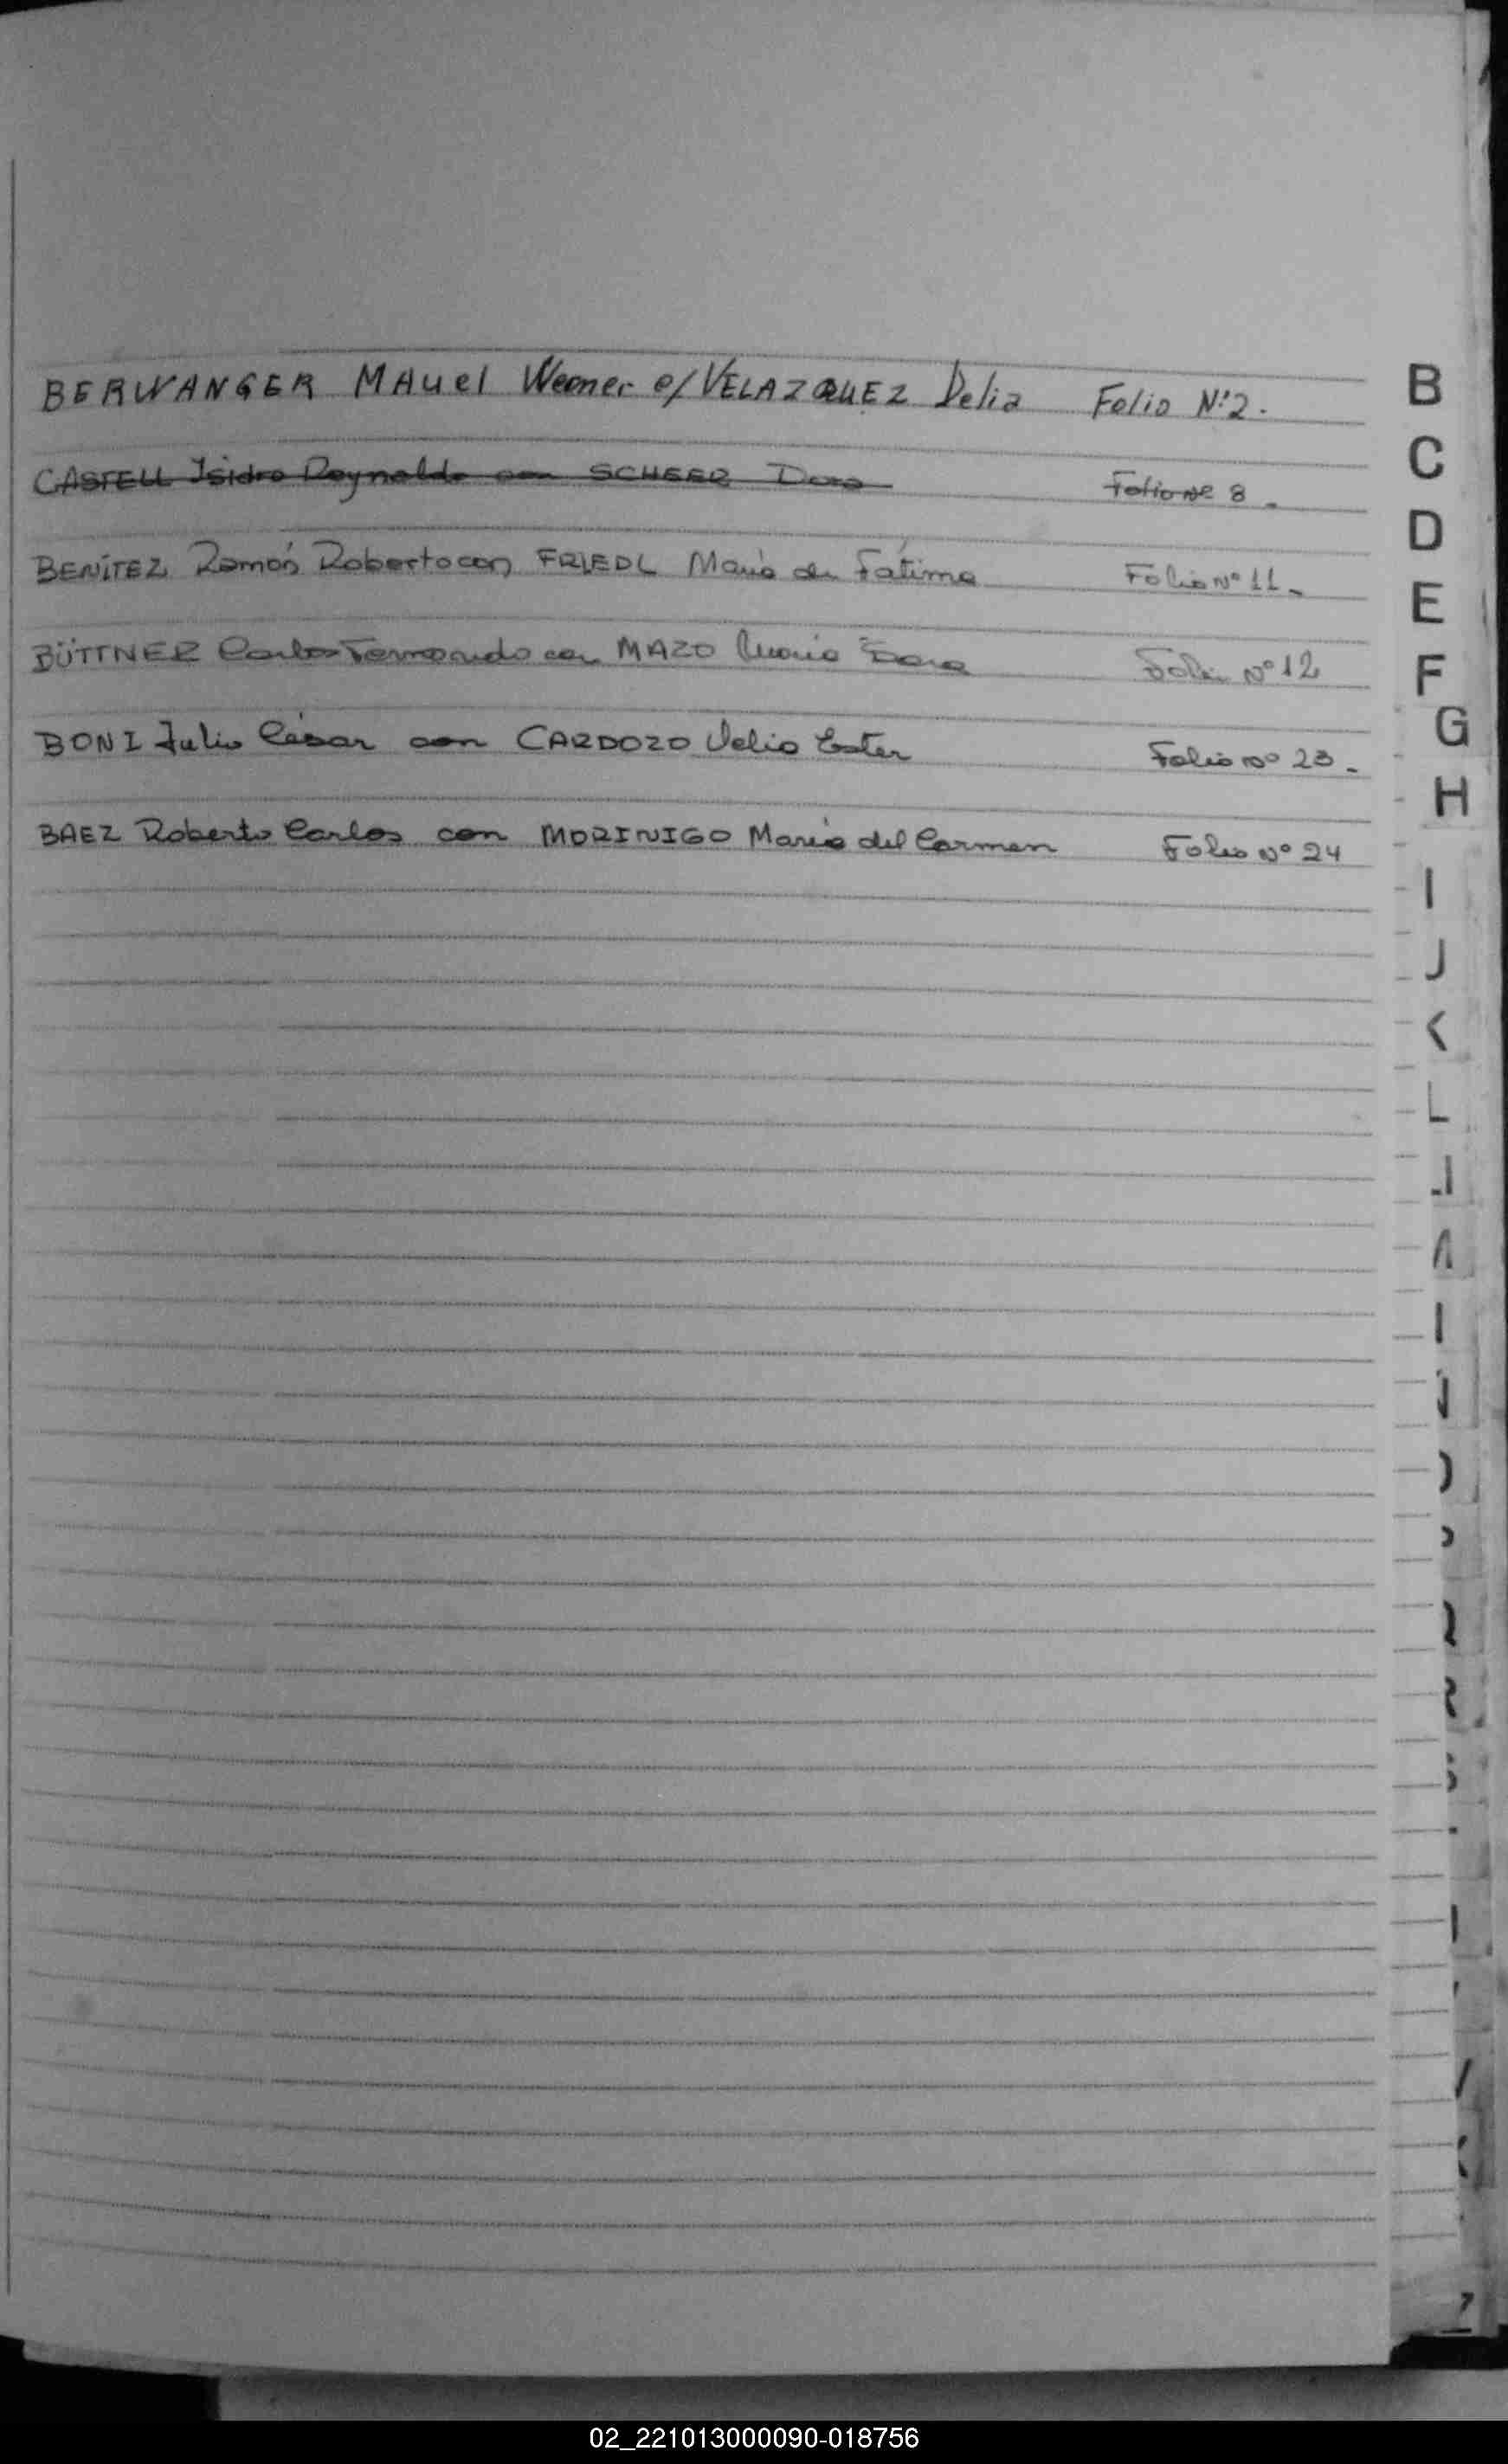 BERWANGER MAuel Werner c/ VELAZQUEZ Delia Folio N°2.
CASTELL Isidro Reynaldo con SCHEER Dora Folio Nº 8.
BENÍTEZ Ramón Roberto con FRIEDL María de Fátima Folio Nº 11.
BÜTTNER Carlos Fernando con MAZO María Folio Nº 12
BONI Julio César con CARDOZO Delia Ester Folio nº 23.
BAEZ Roberto Carlos con MORINIGO María del Carmen Folio Nº 24
B
C
D
E
F
G
H
I
J
K
L
02_221013000090-018756